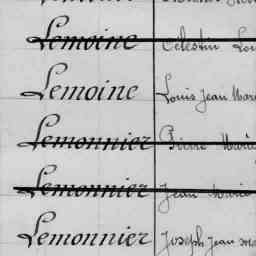 Lemoine Célestin Lou
Lemoine Louis Jean Mari
Lemonnier Pierre Marie
Lemonnier Jean Marie
Lemonnier Joseph Jean Ma